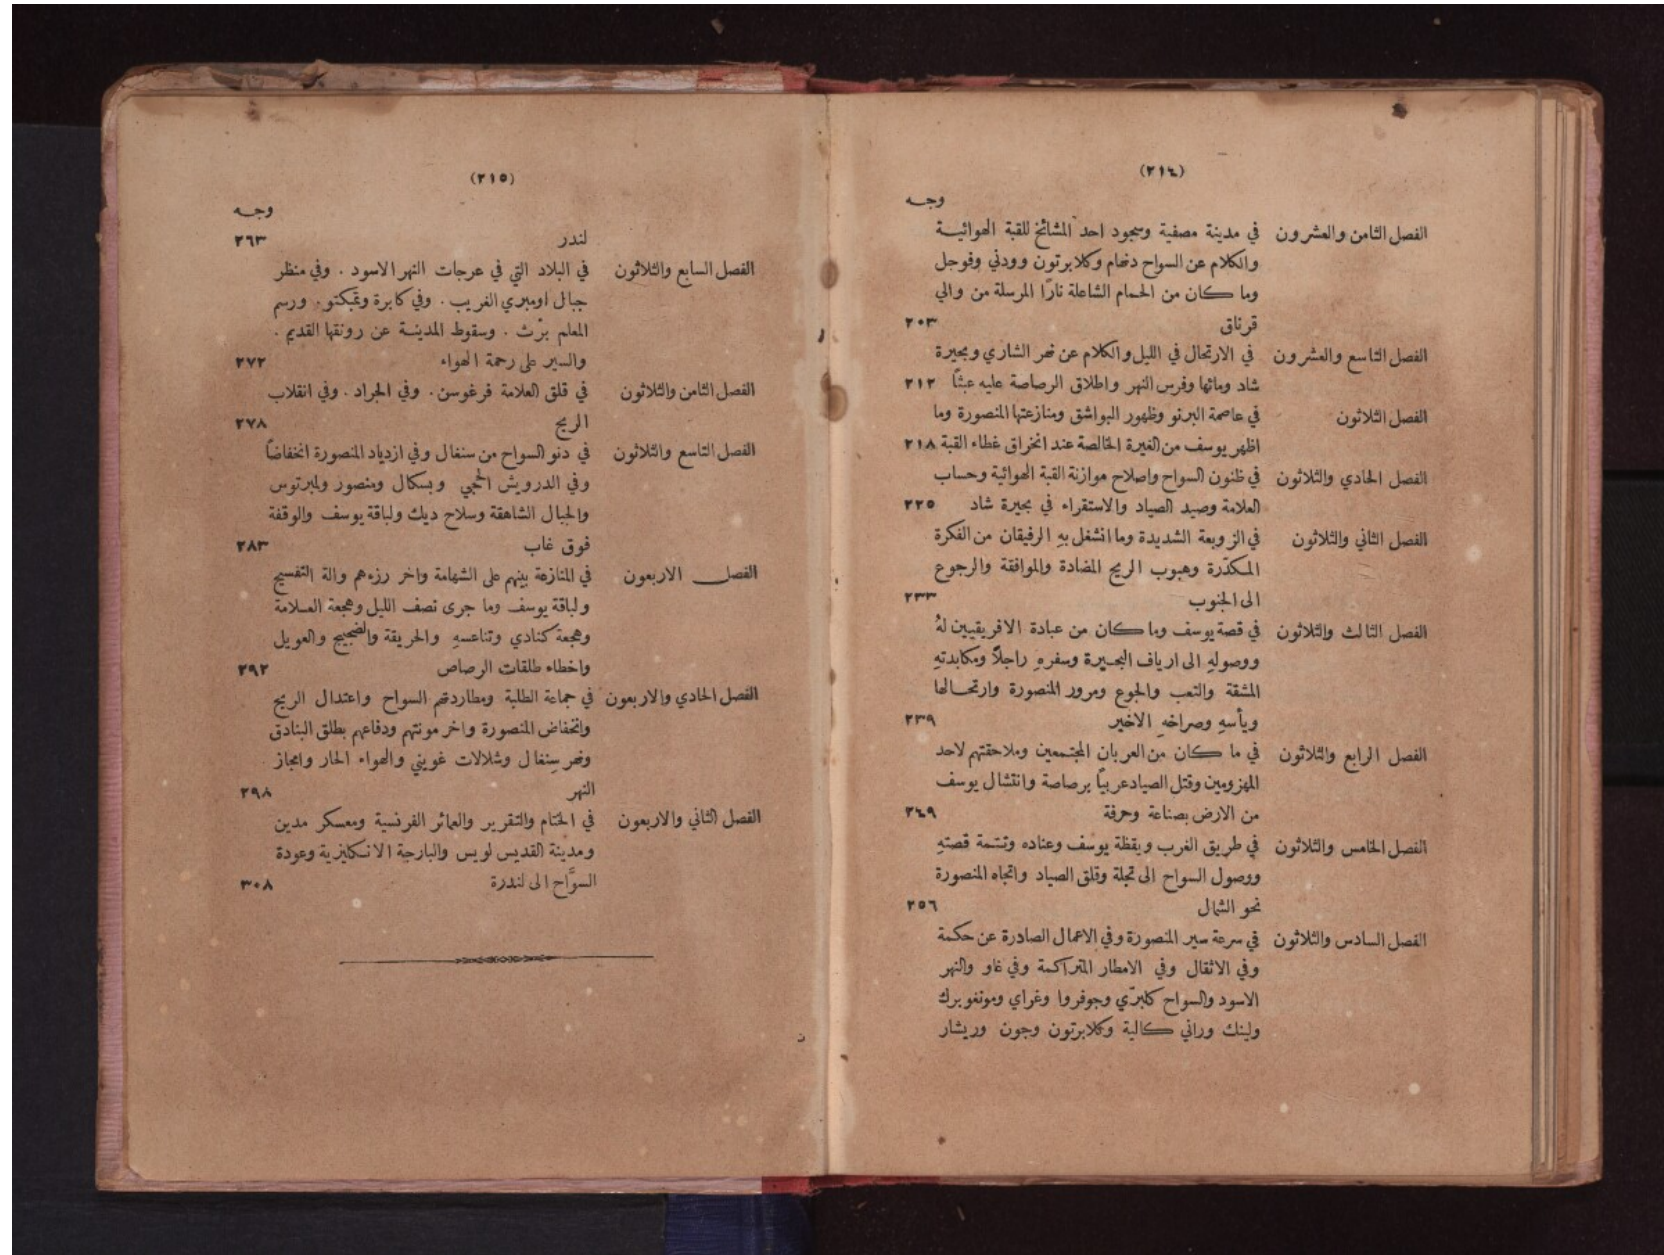 (٣١٤)
وجـه
الفصل الثامن والعشرون في مدينة مصفية وسجود احد المشائخ للقبة الهوائيـة
والكلام عن السواح دنهام وكلابرتون وودني وفوجل
وما كان من الحمام الشاعلة نارًا المرسلة من والي
قرناق ٢٠٣
الفصل التاسع والعشرون في الارتحال في الليل والكلام عن نهر الشاري وبحيرة
شاد ومائها وفرس النهر واطلاق الرصاصة عليه عبثًا ٢١٢
الفصل الثلاثون في عاصمة البرنو وظهور البواشق ومنازعتها المنصورة وما
اظهر يوسف من الغيرة الخالصة عند انخراق غطاء القبة ٢١٨
الفصل الحادي والثلاثون في ظنون السواح واصلاح موازنة القبة الهوائية وحساب
العلامة وصيد الصياد والاستقراء في بحيرة شاد ٢٢٥
الفصل الثاني والثلاثون في الزوبعة الشديدة وما انشغل بهِ الرفيقان من الفكرة
المكدّرة وهبوب الريح المضادة والموافقة والرجوع
الى الجنوب ٢٣٣
الفصل الثالث والثلاثون في قصة يوسف وما كان من عبادة الافريقيين لهُ
ووصولهِ الى ارياف البحيرة وسفرهِ راجلاً ومكابدتهِ
المشقة والتعب والجوع ومرور المنصورة وارتحالها
ويأسهِ وصراخهِ الاخير ٢٣٩
الفصل الرابع والثلاثون في ما كان من العربان المجتمعين وملاحقتهم لاحد
المهزومين وقتل الصياد عربيًا برصاصة وانتشال يوسف
من الارض بصناعة وحرفة ٢٤٩
الفصل الخامس والثلاثون في طريق الغرب ويقظة يوسف وعناده وتتمة قصتهِ
ووصول السواح الى تجلة وقلق الصياد واتجاه المنصورة
نحو الشمال ٢٥٦
الفصل السادس والثلاثون في سرعة سير المنصورة وفي الاعمال الصادرة عن حكمة
وفي الاثقال وفي الامطار المتراكمة وفي غاو والنهر
الاسود والسواح كلبرّي وجوفروا وغراي ومونغو برك
ولينك وراني كالية وكلابرتون وجون وريشار
(٣١٥)
وجـه
لندر ٢٦٣
الفصل السابع والثلاثون في البلاد التي في عرجات النهر الاسود . وفي منظر
جبال اومبري الغريب . وفي كابرة وتمبكتو . ورسم
المعلم برْث . وسقوط المدينـة عن رونقها القديم .
والسير على رحمة الهواء ٢٧٢
الفصل الثامن والثلاثون في قلق العلامة فرغوسن . وفي الجراد . وفي انقلاب
الريح ٢٧٨
الفصل التاسع والثلاثون في دنو السواح من سنغال وفي ازدياد المنصورة انخفاضًا
وفي الدرويش الحجي وبسكال ومنصور ولمبرتوس
والجبال الشاهقة وسلاح ديك ولباقة يوسف والوقفة
فوق غاب ٢٨٣
الفصل الاربعون في المنازعة بينهم على الشهامة واخر رزءهم والة التفسيح
ولباقة يوسف وما جرى نصف الليل وهجعة العلامة
وهجعة كنادي وتناعسهِ والحريقة والضجيج والعويل
واخطاء طلقات الرصاص ٢٩٢
الفصل الحادي والاربعون في جماعة الطلبة ومطاردتهم السواح واعتدال الريح
وانخفاض المنصورة واخر مونتهم ودفاعهم بطلق البنادق
ونهر سنغال وشلالات غويني والهواء الحار وامجاز
النهر ٢٩٨
الفصل الثاني والاربعون في الختام والتقرير والعمائر الفرنسية ومعسكر مدين
ومدينة القديس لويس والبارجة الانكليزية وعودة
السوَّاح الى لندرة ٣٠٨